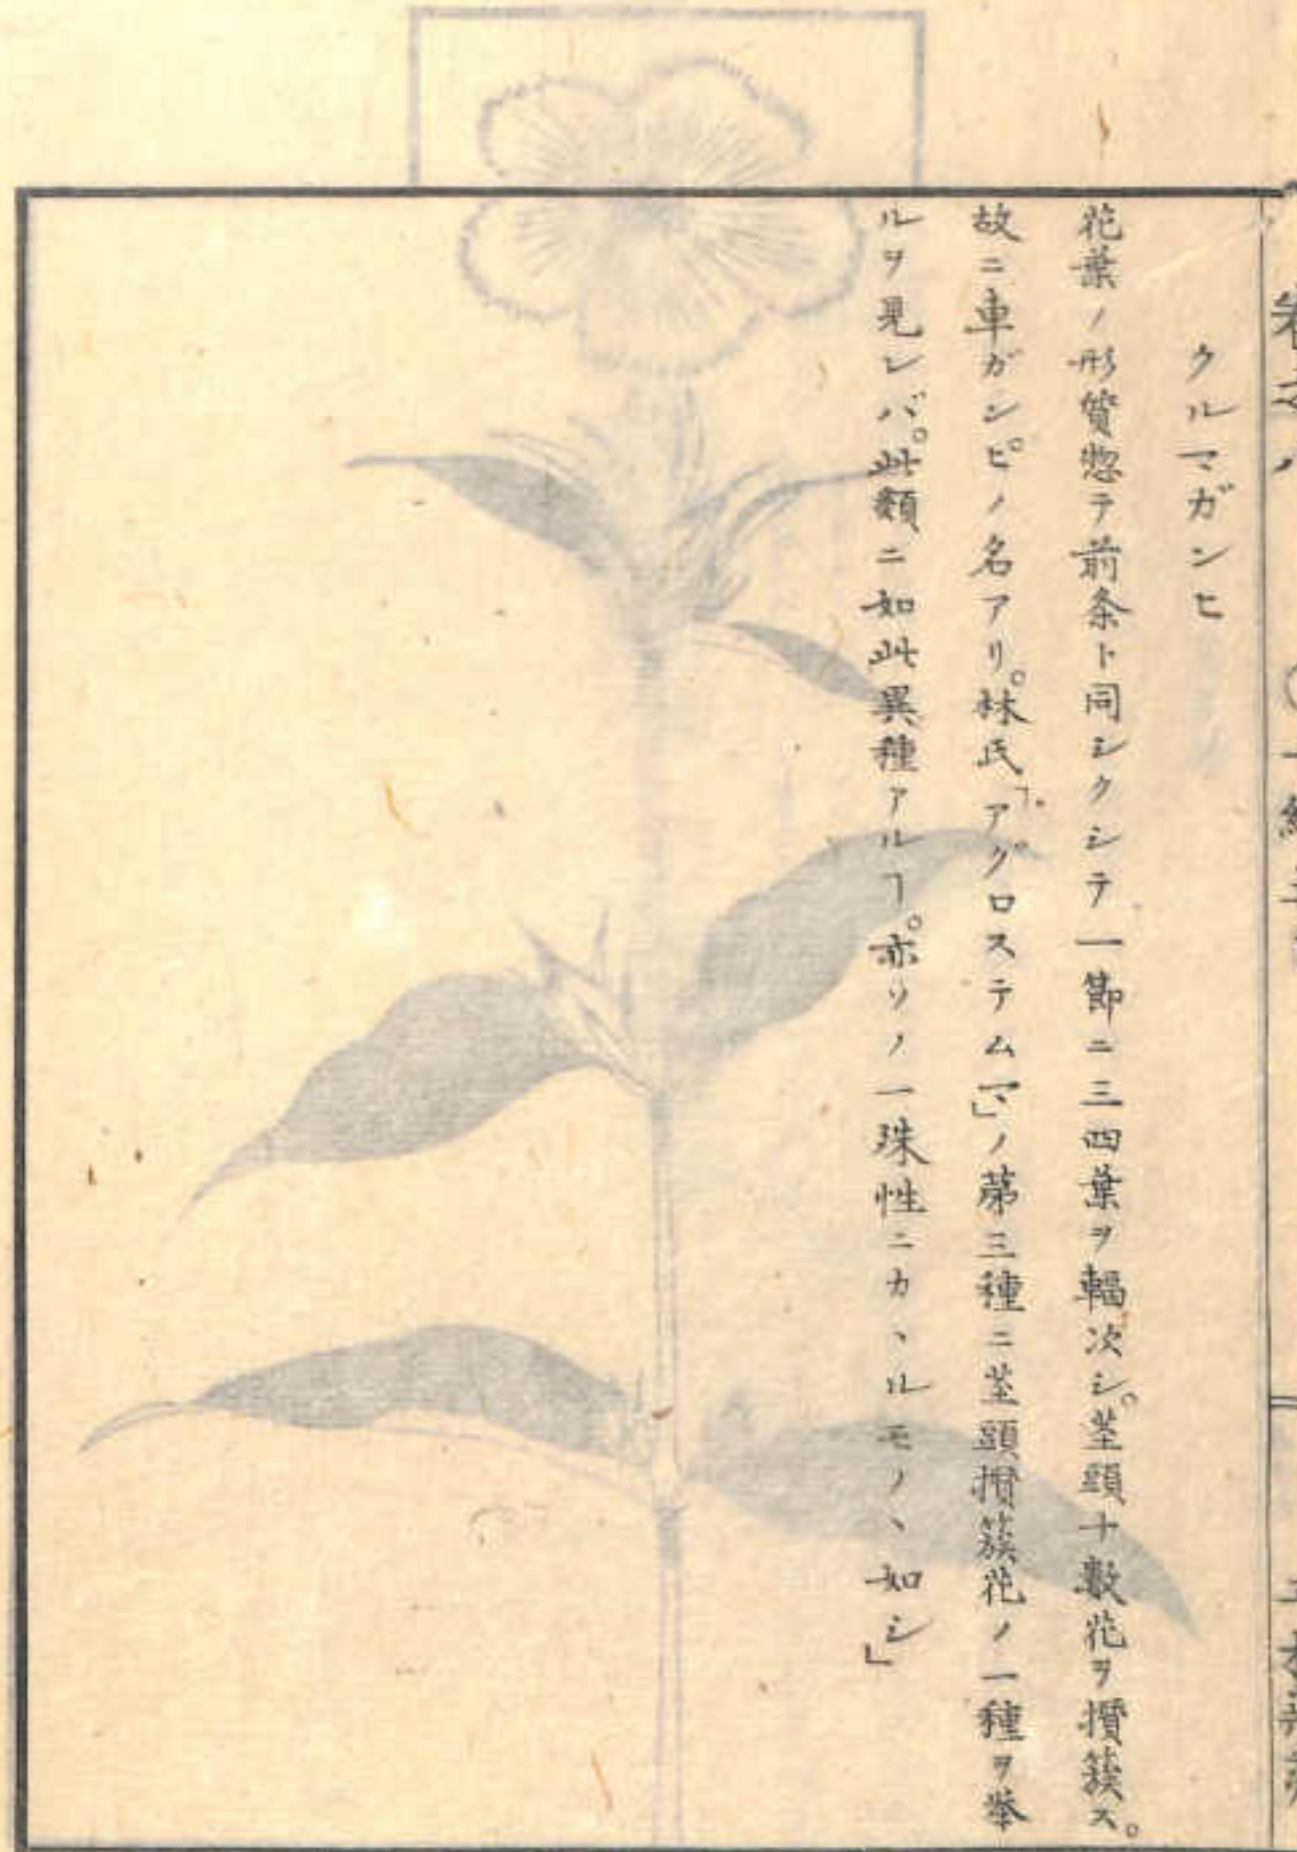 クルマガンヒ
花葉ノ形質惣テ前条ト同シクシテ一節ニ三四葉ヲ輻次シ。茎頭十數花ヲ攅簇ス。
故ニ車ガンピノ名アリ。林氏「アグロステムマ」ノ第三種ニ茎頭攅簇花ノ一種ヲ挙
ルヲ見レバ。此類ニ如此異種アルヿ。亦ソノ一殊性ニカヽルモノヽ如シ」